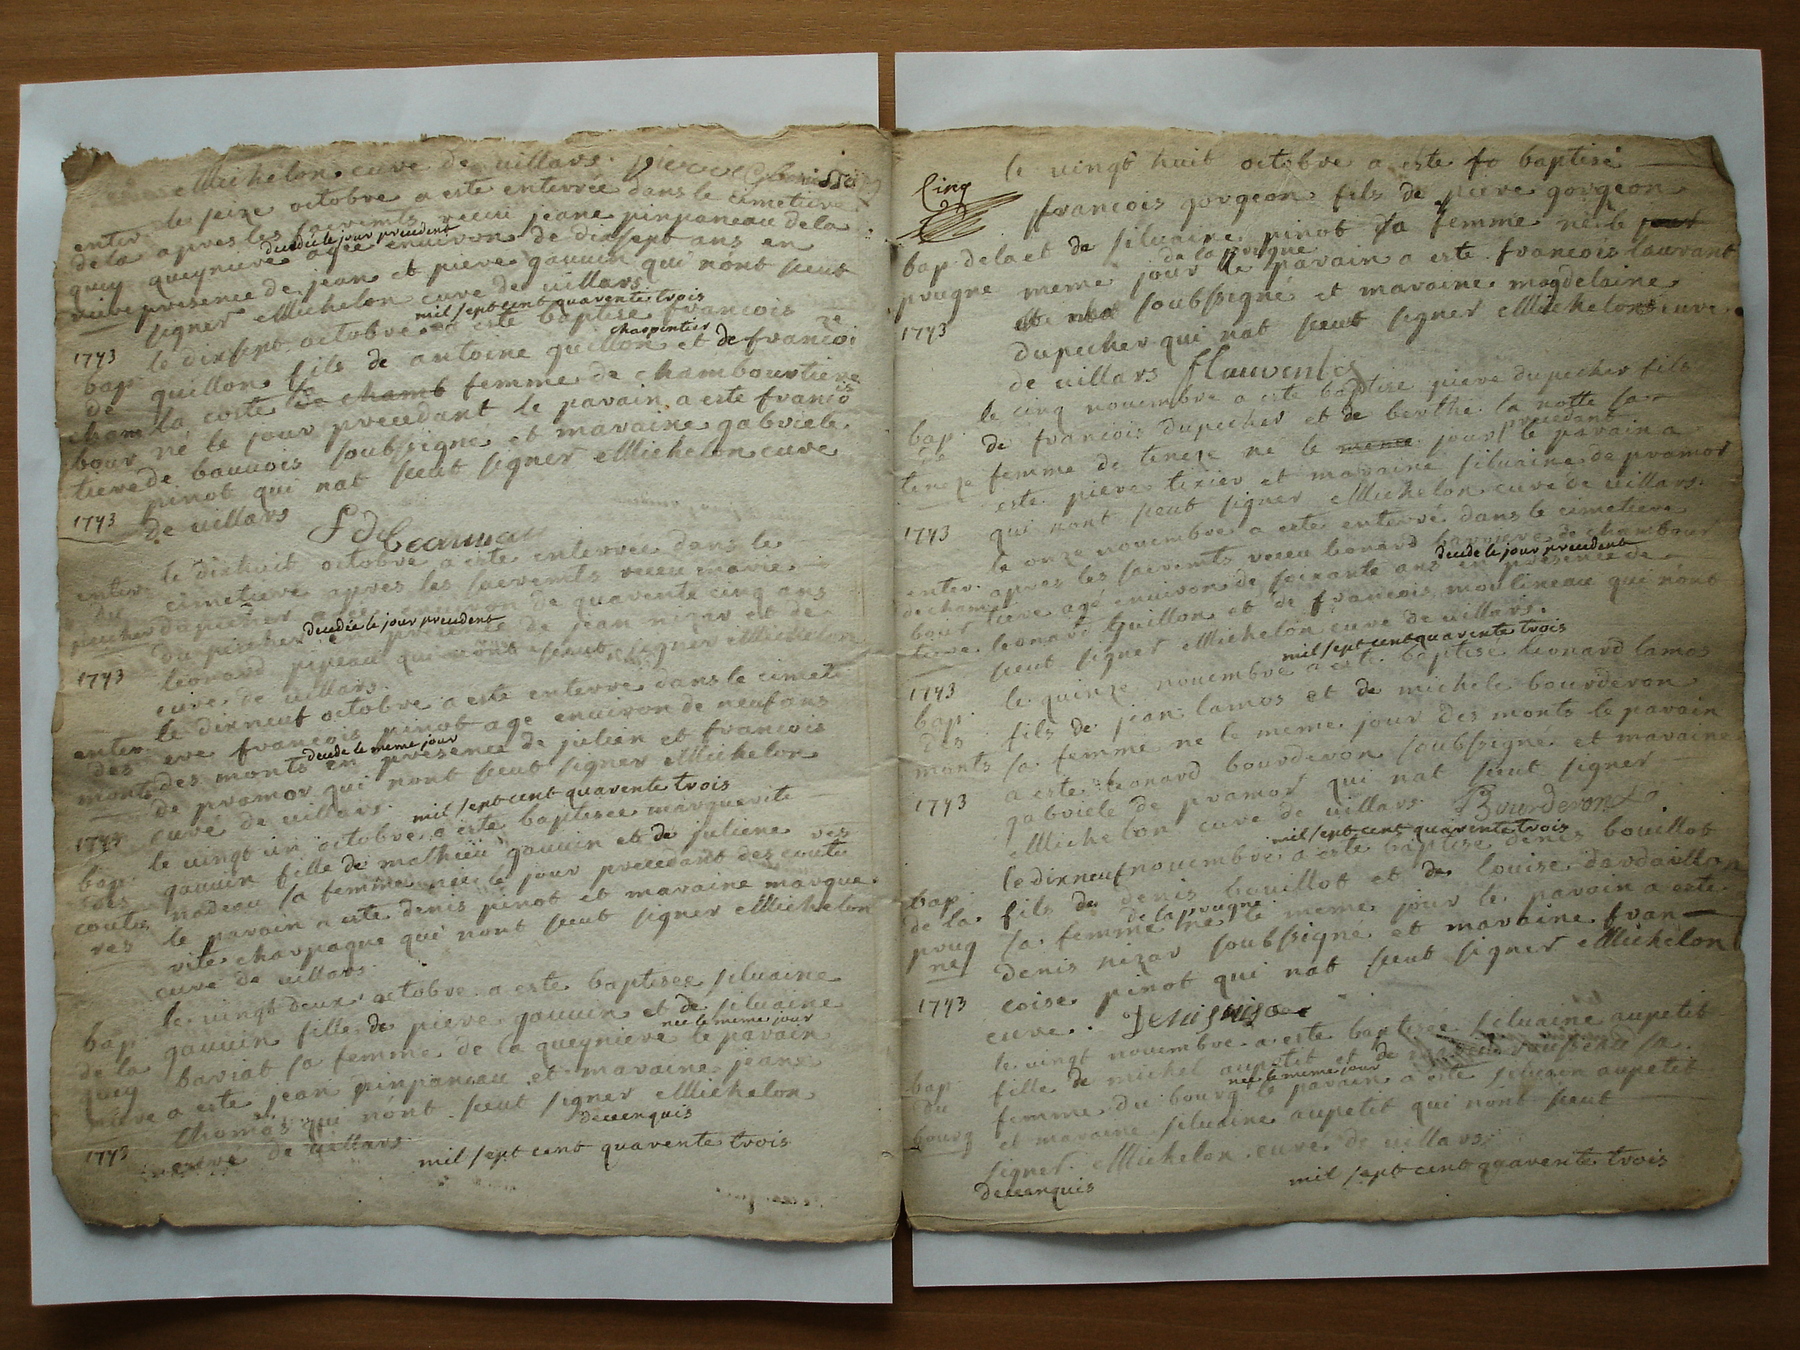 Michelon cure de villars. pierre
le seize octobre a este enterrée dans le cimetiere
enter
dela apres les sacremts receu jeane pinpaneau dela
decedée le jour precedent
quey queyniere agée environ de dixsept ans en
niere presence de jean et piere gauvin qui nónt sceut
signer Michelon cure de villars
mil sept cent quarente trois
1743 le dixsept octobre a este baptise francois
charpentier
bap quillon fils de antoine quillon et de francoi
se
de la coste de chamb femme de chambourtiere
cham né le jour precedant le parain a este francois
bour
tiere de bauvois soubssigné et maraine gabriele
pinot qui nat sceut signer Michelon cure
1743 de villars
le dixhuit octobre a este enterrée dans le
enter cimetiere apres les sacremts receu marie
du
pecher dupecher agée environ de quarente cinq ans
decedée le jour precedent
du pecher en presence de jean nizar et de
leonard pipeau qui nónt sceut signer Michelon
1743 cure de villars
le dixneuf octobre a este enterre dans le cimeti
enter ere francois pinot age environ de neuf ans
des
decede le meme jour
monts des monts en presence de julien et francois
de pramor qui nont sceut signer Michelon
1743 curé de villars
mil sept cent quarente trois
le vingt un octobre a este baptisee marguerite
bap gauvin fille de mathieu gauvin et de juliene
des
res
coutu nadeau sa femme née le jour precedant des coutu
res le parain a este denis pinot et maraine margue
rite charpaque qui nont sceut signer Michelon
cure de villars
le vingt deux octobre a este baptisee silvaine
bap gauvin fille de piere gauvin et de silvaine
née le meme jour
de la bariat sa femme de la queyniere le parain
quey
niere a este jean pinpaneau et maraine jeane
thomas qui nónt sceut signer Michelon
decenquis
1743 cure de villars
mil sept cent quarente trois
le vingt huit octobre a este fo baptisé
Cinq
francois gorgeon fils de piere gorgeon
bap dela et de silvaine pinot sa femme né le jour
de la prugne
prugne meme jour le parain a este francois laurant
soubssigné et maraine magdelaine
1743
dupecher qui nat sceut signer Michelon cure
de villars flaurent
le cinq novembre a este baptise piere dupecher fils
bap de francois dupecher et de berthe la notte sa
de
precedent
teneze femme de teneze né le meme jour le parain a
este piere texier et maraine silvaine de pramor
1743 qui nont sceut signer Michelon cure de villars.
le onze novembre a este enterré dans le cimetiere
enter apres les sacremts receu leonard de chambour
decede le jour precedent
de cham tiere agé environ de soixante ans en presence de
bour
tiere leonard guillon et de francois moulineau qui nónt
sceut signer Michelon cure de villars.
mil sept cent quarente trois
1743 le quinze novembre a este baptise leonard lamos
bap fils de jean lamos et de michele bourderon
des
monts sa femme ne le meme jour des monts le parain
a este leonard bourderon soubssigné et maraine
1743 gabriele de pramor qui nat sceut signer
Michelon cure de villars Bourderon
mil sept cent quarente trois
le dixneuf novembre a este baptise denis bouillot
bap fils de denis bouillot et de louise dardaillon
de la prugne
de la sa femme né le meme jour le parain a este
prug denis nizar soubssigne et maraine fran
ne
coise pinot qui nat sceut signer Michelon
1743 cure. Denis nisar
le vingt novembre a este baptisée silvaine aupetit
bap fille de michel aupetit et de rousseau sa
née le meme jour
du femme du bourg le parain a este silvain aupetit
bourg et maraine silvaine aupetit qui nónt sceut
signer Michelon cure de villars
decenquis mil sept cent quarente trois